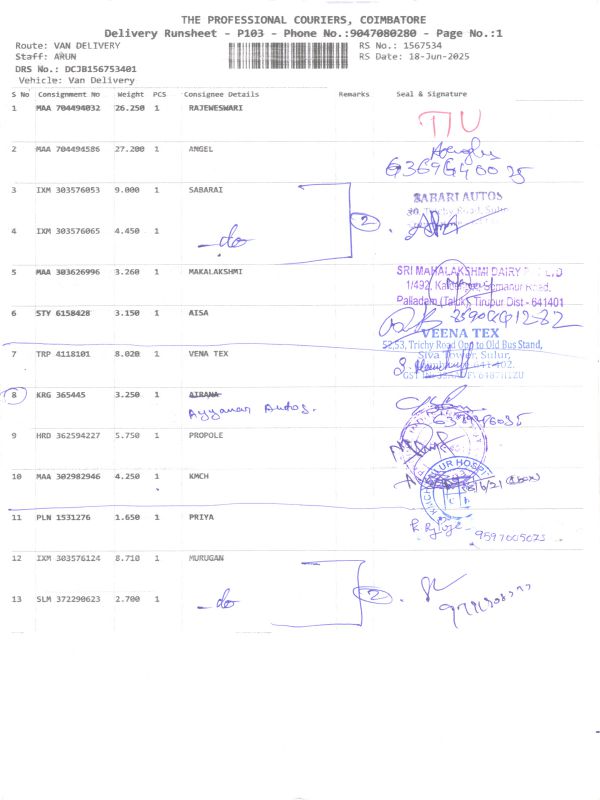 THE PROFESSIONAL COURIERS, COIMBATORE
Delivery Runsheet - P103 - Phone No.:9047080280 - Page No.:1
Route: VAN DELIVERY
RS No.: 1567534
Staff: ARUN
RS Date: 18-Jun-2025
DRS No.: DCJB156753401
Vehicle: Van Delivery
S No Consignment No Weight PCS Consignee Details Remarks Seal & Signature
1 MAA 704494032 26.250 1 RAJEWESWARI
2 MAA 704494586 27.200 1 ANGEL
3 IXM 303576053 9.000 1 SABARAI
SABARI AUTOS
2
4 IXM 303576065 4.450 1 - do
5 MAA 303626996 3.260 1 MAKALAKSHMI
SRI MAHALAKSHMI DAIRY
Palladam (Taluk), Tirupur Dist - 641401
6 STY 6158428 3.150 1 AISA
VEENA TEX
52,53, Trichy Road Opp to Old Bus Stand,
Siva Tower, Sulur,
7 TRP 4118101 8.020 1 VENA TEX
8 KRG 365445 3.250 1 AIRANA
Ayyanar Autos.
9 HRD 362594227 5.750 1 PROPOLE
10 MAA 302982946 4.250 1 KMCH
11 PLN 1531276 1.650 1 PRIYA
12 IXM 303576124 8.710 1 MURUGAN
2
13 SLM 372290623 2.700 1 - do